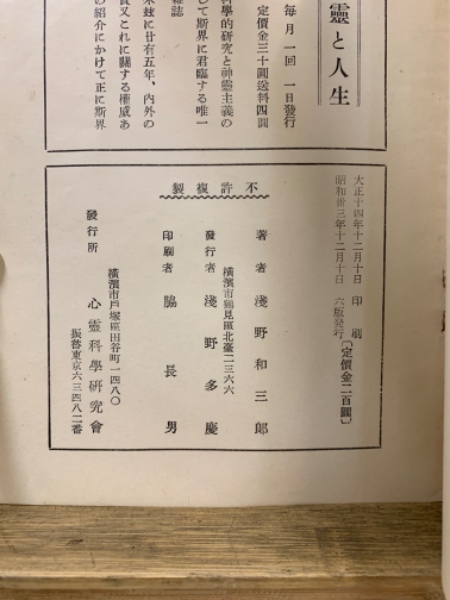 靈と人生
每月一回 一日發行
定價金三十圓送料四圓
科學的研究と神靈主義の
して斯界に君臨する唯一
雜誌
來玆に廿有五年、內外の
又これに關する權威あ
の紹介にかけて正に斯界
大正十四年十二月十日 印刷
昭和卅三年十二月十日 六版發行
〔定價金二百圓〕
不許複製
著者 淺野和三郎
橫濱市鶴見區北臺二三六六
發行者 淺野多慶
印刷者 脇長男
橫濱市戶塚區田谷町一四八〇
發行所 心靈科學硏究會
振替東京六三四八二番